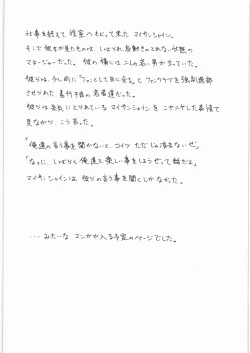 仕事を終えて控室へもどって来たマイサンシャイン。
そこで彼女が見たものは、しばられ身動きのとれない状態の
マネージャーだった。彼の横には二人の若い男が立っていた。
彼らは、少し前に「ファンとして目に余る」とファンクラブを強制退部
させられた素行不良の若者達だった。
彼らは呆気にとられているマイサンシャインをニヤニヤした表情で
見ながら、こう言った。
「俺達の言う事を聞かないと、コイツただじゃ済まないぜ。」
「なぁに、しばらく俺達と楽しい事をしようぜって話だよ」
マイサンシャインは、彼らの言う事を聞くしかなかった。
・・・みたいなマンガが入る予定のページでした。